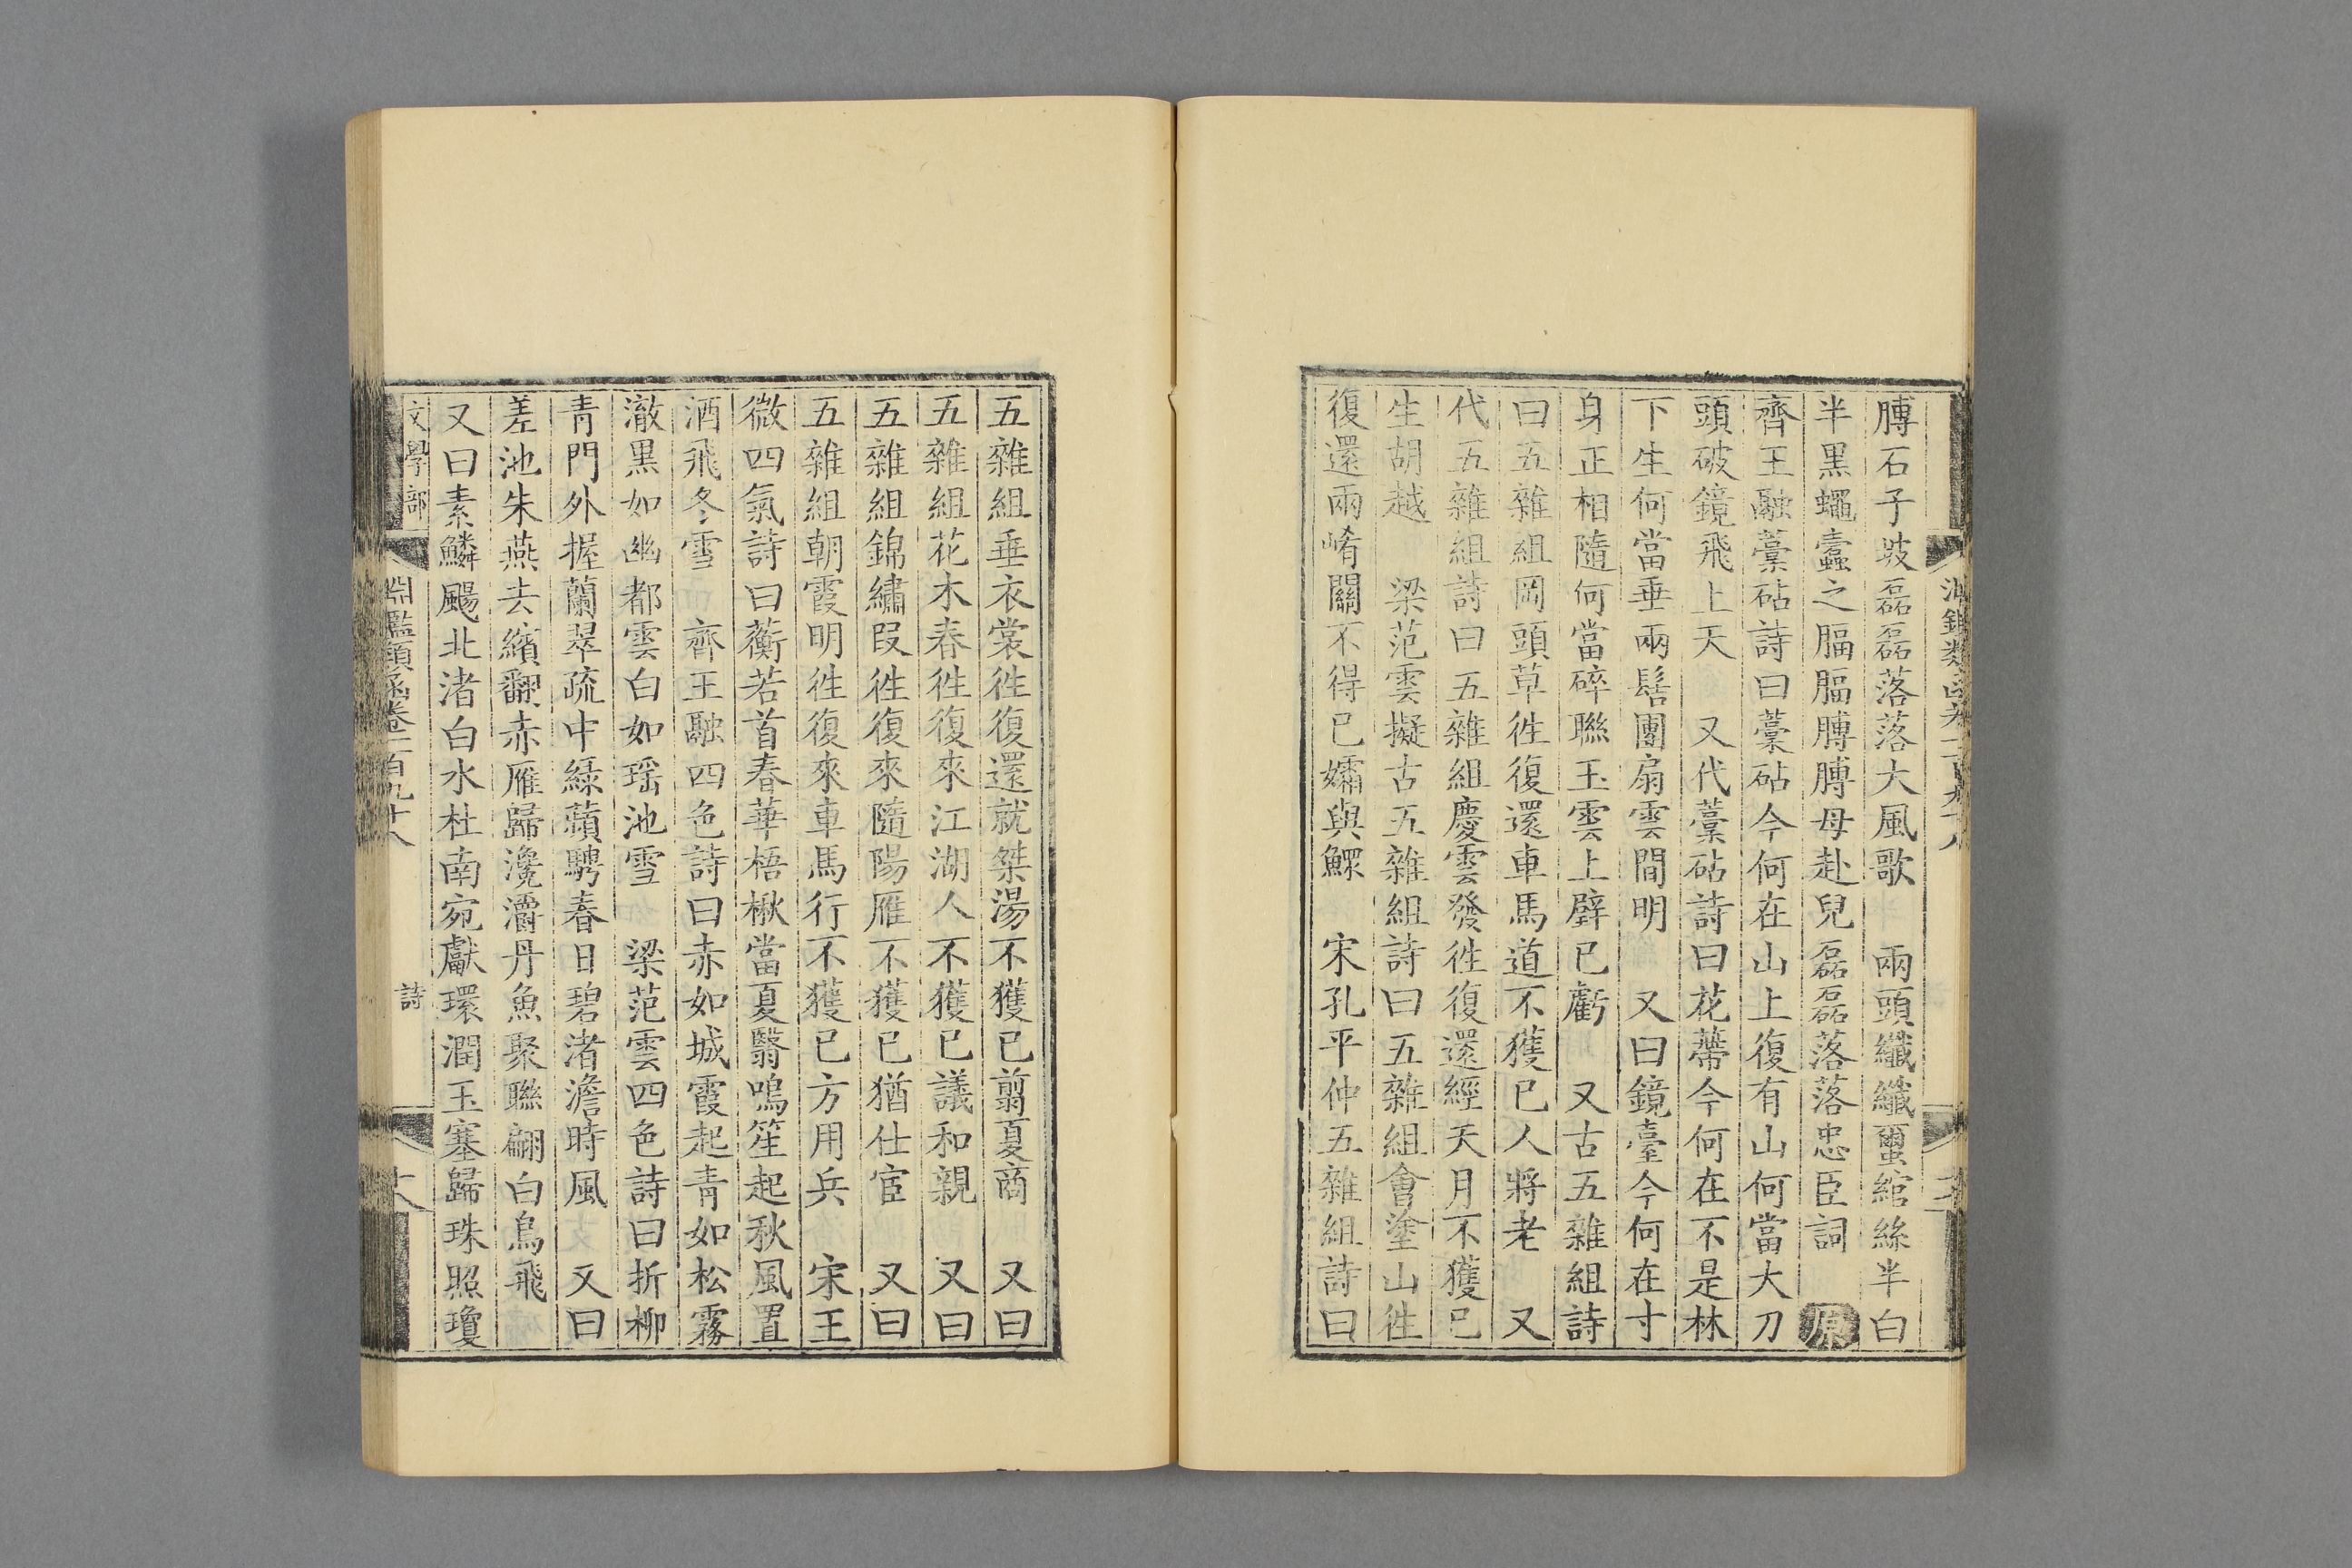 膊石子㱟磊磊落落大風歌 兩頭纖纖蠒綰絲半白
半黑蠅蠹之腷腷膊膊母赴兒磊磊落落忠臣詞 原
齊王融藁砧詩曰藁砧今何在山上復有山何當大刀
頭破鏡飛上天 又代藁砧詩曰花蔕今何在不是林
下生何當垂兩髻團扇雲間明 又曰鏡臺今何在寸
身正相隨何當碎聯玉雲上璧已虧 又古五雜組詩
曰五雜組岡頭草徃復還車馬道不獲已人將老 又
代五雜組詩曰五雜組慶雲發徃復還經天月不獲已
生胡越 梁范雲擬古五雜組詩曰五雜組會塗山徃
復還兩崤關不得已孀與鰥 宋孔平仲五雜組詩曰
五雜組垂衣裳徃復還就桀湯不獲已翦夏商 又曰
五雜組花木春徃復來江湖人不獲已議和親 又曰
五雜組錦繡叚徃復來隨陽雁不獲已猶仕宦 又曰
五雜組朝霞明徃復來車馬行不獲已方用兵 宋王
微四氣詩曰蘅若首春華梧楸當夏翳鳴笙起秋風置
酒飛冬雪 齊王融四色詩曰赤如城霞起青如松霧
澈黑如幽都雲白如瑶池雪 梁范雲四色詩曰折柳
青門外握蘭翠疏中緑蘋騁春日碧渚澹時風 又曰
差池朱燕去繽翻赤雁歸瀺灂丹魚聚聯翩白烏飛
又曰素鱗颺北渚白水杜南宛獻環潤玉塞歸珠照瓊
文學部 淵鑑類函卷一百九十八 詩 十八